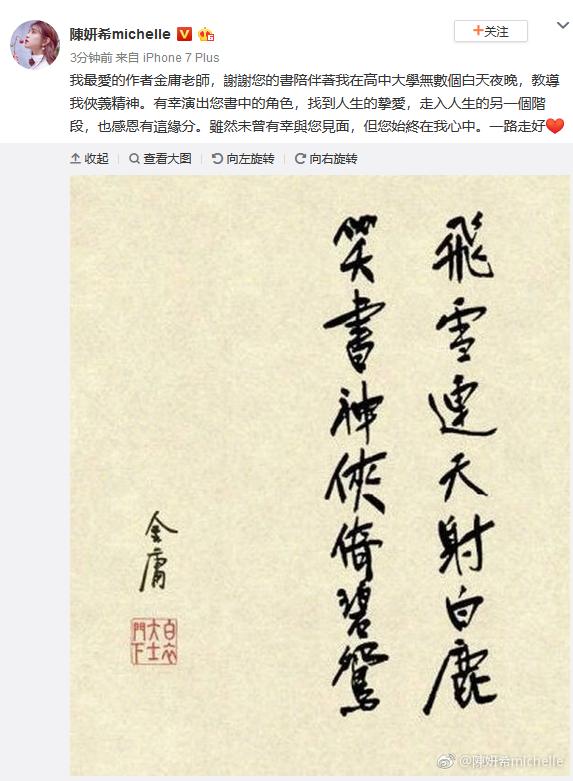 陳妍希michelle
+关注
3分钟前 来自 iPhone 7 Plus
我最愛的作者金庸老師，謝謝您的書陪伴著我在高中大學無數個白天夜晚，教導
我俠義精神。有幸演出您書中的角色，找到人生的摯愛，走入人生的另一個階
段，也感恩有這緣分。雖然未曾有幸與您見面，但您始終在我心中。一路走好❤
收起 查看大图 向左旋转 向右旋转
飛雪連天射白鹿
笑書神俠倚碧鴛
金庸
白衣
大士
門下
@陳妍希michelle